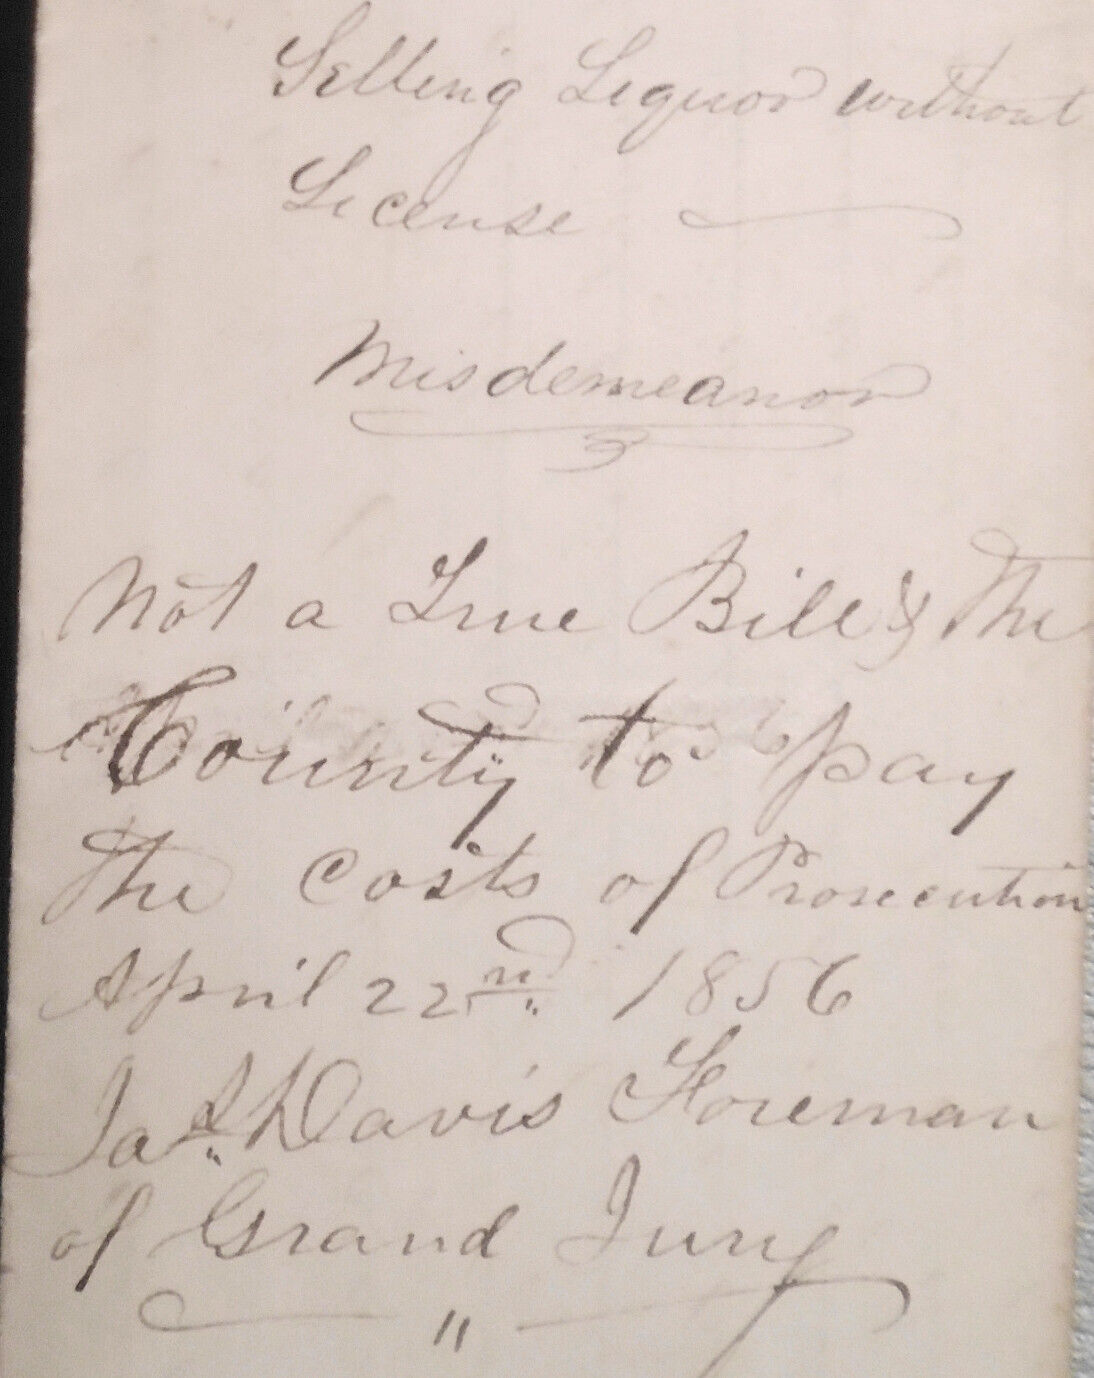 Selling Liquor without
License
Misdemeanor
Not a True Bill & the
County to pay
the Costs of Prosecution
April 22nd 1856
Jas Davis Foreman
of Grand Jury